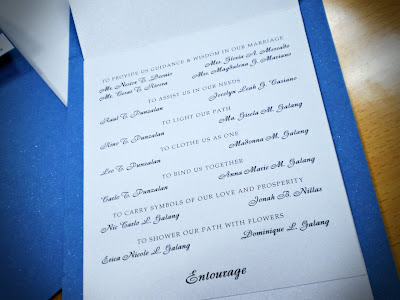 TO PROVIDE US GUIDANCE & WISDOM IN OUR MARRIAGE
Mrs. Gloria A. Mercado
Mrs. Magdalena G. Mariano
TO ASSIST US IN OUR NEEDS
Raul T. Punzalan Jocelyn Leah G. Casiano
TO LIGHT OUR PATH
Rino T. Punzalan Ma. Gisela M. Galang
TO CLOTHE US AS ONE
Leo T. Punzalan Madonna M. Galang
TO BIND US TOGETHER
Carlo T. Punzalan Anna Marie M. Galang
TO CARRY SYMBOLS OF OUR LOVE AND PROSPERITY
Nic Carlo L. Galang Jonah B. Nillas
TO SHOWER OUR PATH WITH FLOWERS
Erica Nicole L. Galang Dominique L. Galang
Entourage